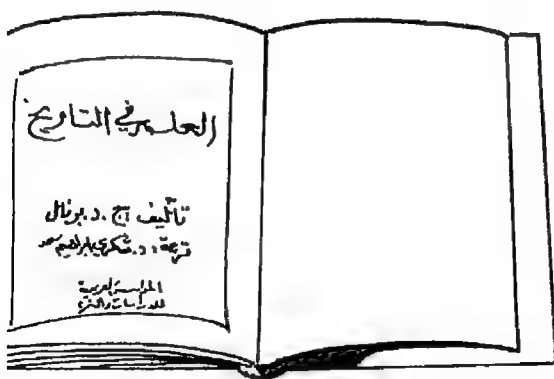 العلم في التاريخ
تأليف ج. د. برنال
ترجمة: د. شكري ابراهيم سعد
المؤسسة العربية
للدراسات والنشر